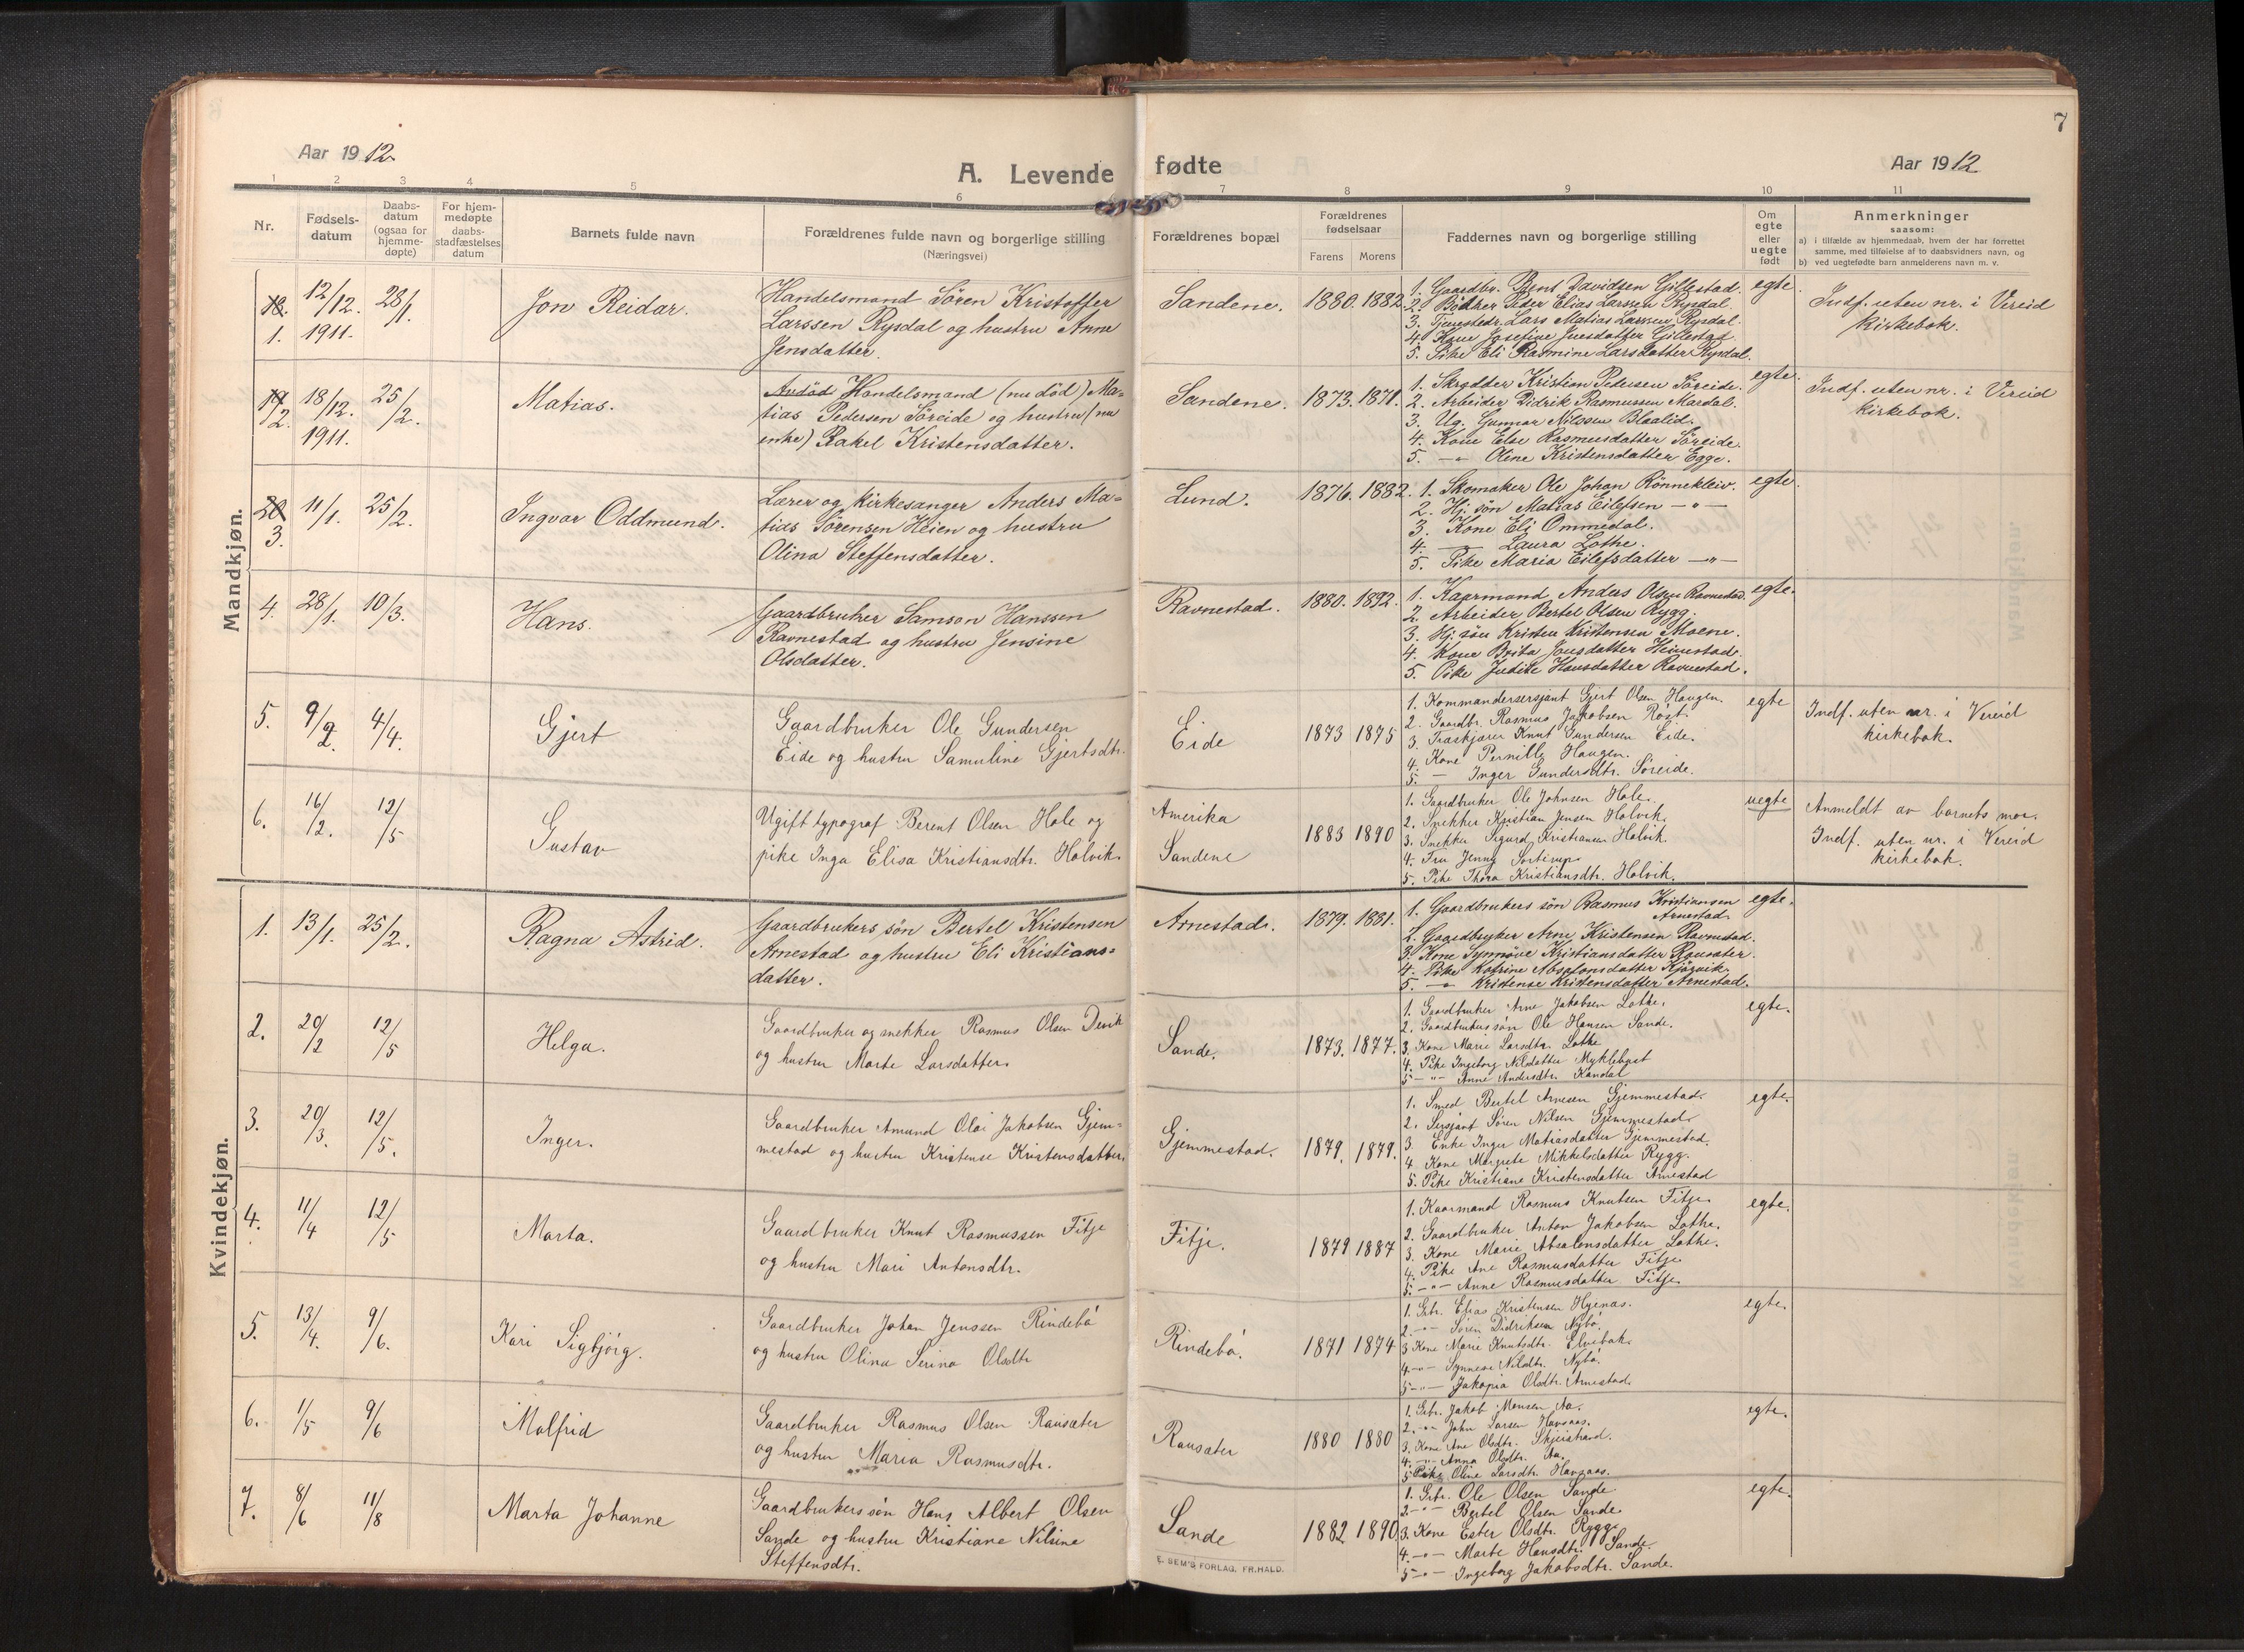 7
Aar 1912.
A. Levende
1 2 3 4 5 6
Nr.
Fødsels-
datum
Daabs-
datum
(ogsaa for
hjemme-
døpte)
For hjem-
medøpte
daabs-
stadfæstelses
datum
Barnets fulde navn
Forældrenes fulde navn og borgerlige stilling
(Næringsvei)
Mandkjøn.
18. 12/12. 28/1. Jon Reidar. Handelsmand Sören Kristoffer
1. 1911. Larssen Rysdal og hustru Anna
Jensdatter.
19 18/12. 25/2. Matias. Andöd Handelsmand (nu död) Ma=
2. 1911. tias Pedersen Söreide og hustru (nu
enke) Rakel Kristensdatter.
20 11/1. 25/2. Ingvar Oddmund. Lærer og kirkesanger Anders Ma=
3. tias Sörensen Heien og hustru
Olina Steffensdatter.
4. 28/1. 10/3. Hans. Gaardbruker Samson Hanssen
Ravnestad og hustru Jensine
Olsdatter.
5. 9/2. 4/4. Gjert Gaardbruker Ole Gundersen
Eide og hustru Samuline Gjertsdtr.
6. 16/2. 12/5 Gustav Ugift typograf Berent Olsen Hole og
pike Inga Elisa Kristiansdtr. Holvik.
Kvindekjøn.
1. 13/1. 25/2. Ragna Astrid. Gaardbrukers sön Bertel Kristensen
Arnestad og hustru Eli Kristians=
datter.
2. 20/2 12/5 Helga. Gaardbruker og snekker Rasmus Olsen Devik
og hustru Marte Larsdatter.
3. 20/3. 12/5. Inger. Gaardbruker Amund Olai Jakobsen Gjem=
mestad og hustru Kristense Kristensdatter.
4. 11/4 12/5 Marta. Gaardbruker Knut Rasmussen Fitje
og hustru Mari Antonsdtr.
5. 13/4. 9/6. Kari Sigbjörg. Gaardbruker Johan Jenssen Rindebö
og hustru Olina Serina Olsdtr
6. 1/5 9/6 Malfrid Gaardbruker Rasmus Olsen Rausæter
og hustru Maria Rasmusdtr.
7. 8/6 11/8 Marta Johanne Gaardbrukerssön Hans Albert Olsen
Sande og hustru Kristiane Nilsine
Steffensdtr.
fødte
Aar 1912
7 8 9 10 11
Forældrenes bopæl
Forældrenes
fødselsaar
Farens Morens
Faddernes navn og borgerlige stilling
Om
egte
eller
uegte
født
Anmerkninger
saasom:
a) i tilfælde av hjemmedaab, hvem der har forrettet
samme, med tilføielse af to daabsvidners navn, og
b) ved uegtefødte barn anmelderens navn m. v.
Sandene. 1880. 1882. 1. Gaardbr. Bent Davidsen Gillestad. egte.
2. Bödker Peder Elias Larssen Rysdal.
3. Tjenestedr. Lars Matias Larssen Rysdal.
4. Kone Josefine Jensdatter Gillestad.
5. Pike Eli Rasmine Larsdatter Rysdal.
Indf. uten nr. i Vereid
kirkebok.
Sandene. 1873. 1871. 1. Skrædder Kristian Pedersen Söreide. egte.
2. Arbeider Didrik Rasmussen Mardal.
3. Ug. Gunnar Nilssen Blaalid.
4. Kone Else Rasmusdatter Söreide.
5. —"— Oline Kristensdatter Egge.
Indf. uten nr. i Vereid
kirkebok.
Lund. 1876. 1882. 1. Skomaker Ole Johan Rönnekleiv. egte.
2. Hj. sön Matias Eilefsen —"—
3. Kone Eli Ommedal.
4. — Laura Lothe.
5. Pike Maria Eilefsdatter —"—
Ravnestad. 1880. 1892. 1. Kaarmand Anders Olsen Ravnestad. egte.
2. Arbeider Bertel Olsen Rygg.
3. Hj. sön Kristen Kristensen Moene.
4. Kone Brita Jonsdatter Heimestad.
5. Pike Judite Hansdatter Ravnestad.
Eide 1873 1875 1. Kommandersersjant Gjert Olsen Haugen. egte
2. Gaardbr. Rasmus Jakobsen Rost.
3. Træskjærer Knut Gundersen Eide.
4. Kone Pernille Haugen.
5. — Inger Gundersdtr. Söreide.
Indf. uten nr. i Vereid
kirkebok.
Amerika
Sandene 1883 1890 1. Gaardbruker Ole Johnsen Hole. uegte
2. Snekker Kristian Jensen Holvik.
3. Snekker Sigurd Kristiansen Holvik.
4. Fru Jenny Sorterup.
5. Pike Thora Kristiansdtr. Holvik.
Anmeldt av barnets mor.
Indf. uten nr. i Vereid
kirkebok.
Arnestad. 1879. 1881. 1. Gaardbrukers sön Rasmus Kristiansen egte.
Arnestad.
2. Gaardbruker Arne Kristensen Ravnestad.
3. Kone Synnöve Kristiansdatter Rausæter.
4. Pike Katrine Absalonsdatter Hjörvik.
5. —"— Kristense Kristensdatter Arnestad.
Sande. 1873. 1877. 1. Gaardbruker Arne Jakobsen Lothe. egte.
2. Gaardbrukerssön Ole Hansen Sande.
3. Kone Marie Larsdtr. Lothe
4. Pike Ingeborg Nilsdatter Myklebust
5 —"— Anne Andersdtr. Kandal
Gjemmestad. 1879. 1879. 1. Smed Bertel Arnesen Gjemmestad. egte.
2. Sersjant Sören Nilsen Gjemmestad.
3. Enke Inger Matiasdatter Gjemmestad.
4. Kone Margrete Mikkelsdatter Rygg.
5. Pike Kristiane Kristensdatter Arnestad
Fitje. 1879 1887 1. Kaarmand Rasmus Knutsen Fitje. egte.
2. Gaardbruker Anton Jakobsen Lothe.
3. Kone Marie Absalonsdatter Lothe.
4. Pike Ane Rasmusdatter Fitje
5. —"— Anne Rasmusdatter Fitje
Rindebö. 1871 1874 1. Gbr. Elias Kristensen Hyenas. egte.
2. —"— Sören Didriksen Nybö.
3 Kone Marie Knutsdtr. Elvebak.
4 —"— Synneve Nilsdtr. Nybö.
5 —"— Jakopia Olsdtr. Arnestad.
Rausæter 1880 1880 1. Gbr. Jakob Monsen Aa. egte.
2. —"— John Larsen Havaas.
3. Kone Ane Olsdtr. Skjeistrand.
4. —"— Anna Olsdtr. Aa.
5 Pike Oline Larsdtr. Havaas.
Sande 1882 1890 1. Gbr. Ole Olsen Sande egte.
2 —"— Bertel Olsen Sande
3. Kone Ester Olsdtr. Rygg.
4. —"— Marte Hansdtr. Sande.
5 —"— Ingeborg Jakobsdtr. Sande.
E. SEM'S FORLAG, FR.HALD.